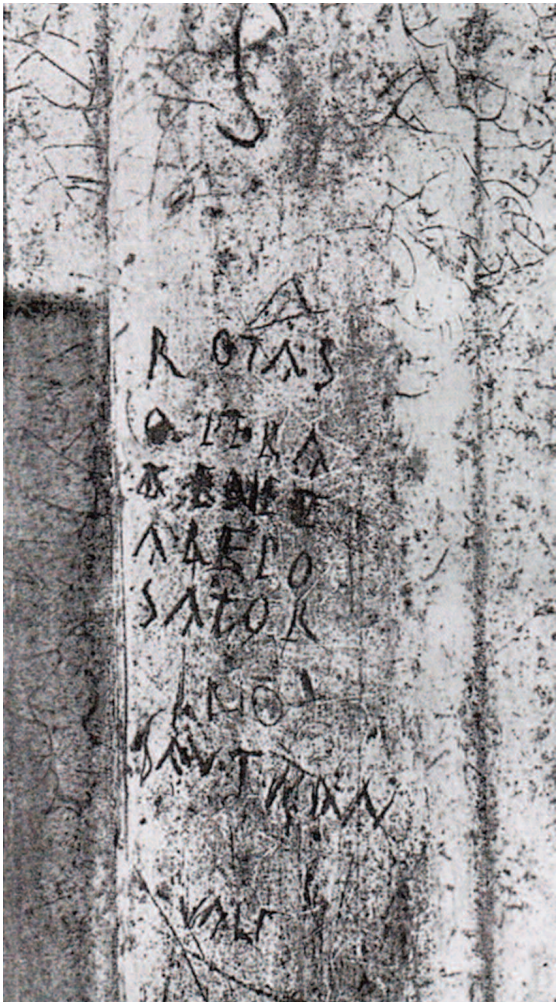 S
A
ROTAS
OPERA
TENET
AREPO
SATOR
ANO
SAUTRAN
VALE